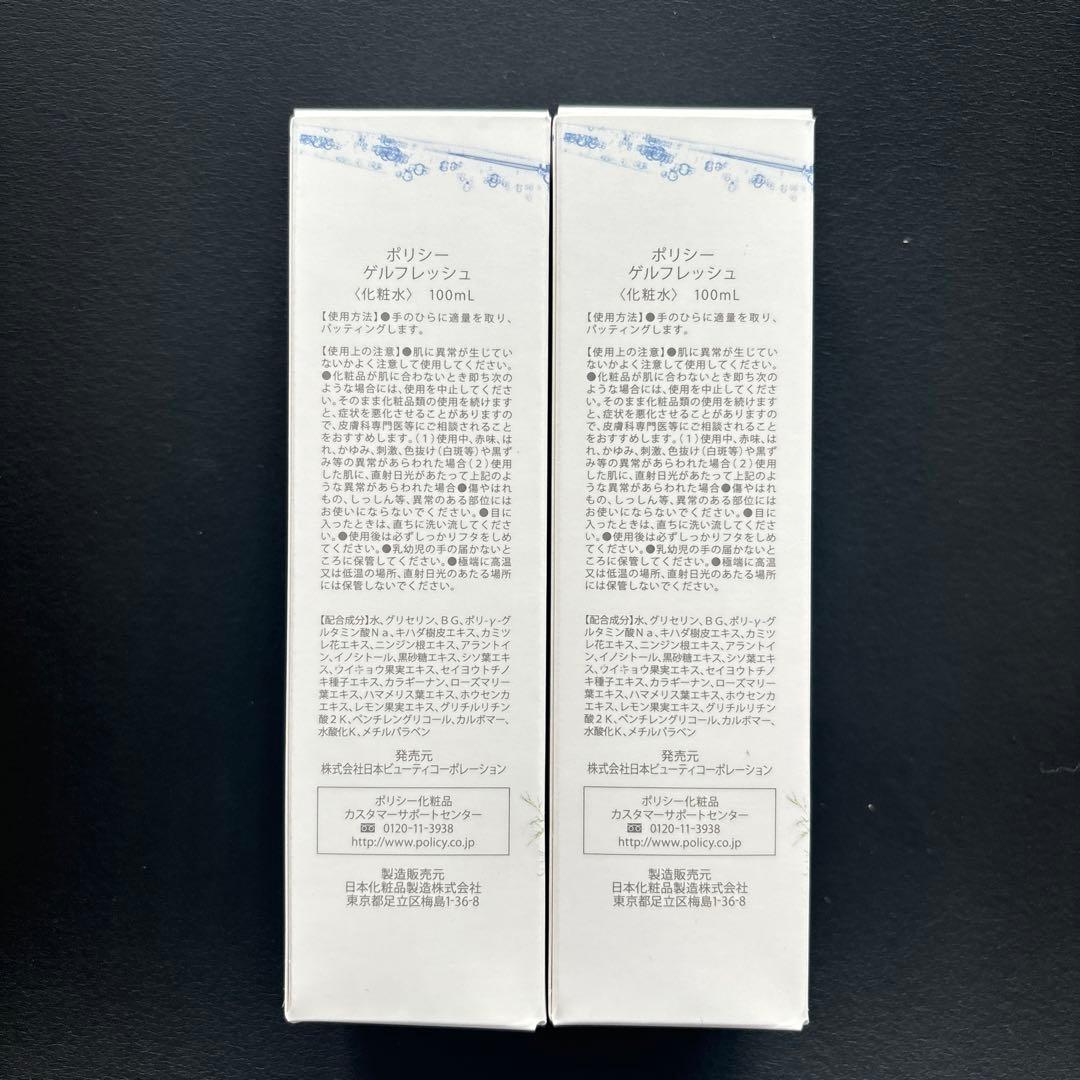 ポリシー
ゲルフレッシュ
〈化粧水〉 100mL
【使用方法】●手のひらに適量を取り、
パッティングします。
【使用上の注意】●肌に異常が生じてい
ないかよく注意して使用してください。
●化粧品が肌に合わないとき即ち次の
ような場合には、使用を中止してくださ
い。そのまま化粧品類の使用を続けます
と、症状を悪化させることがありますの
で、皮膚科専門医等にご相談されること
をおすすめします。（1）使用中、赤味、は
れ、かゆみ、刺激、色抜け（白斑等）や黒ず
み等の異常があらわれた場合（2）使用
した肌に、直射日光があたって上記のよ
うな異常があらわれた場合●傷やはれ
もの、しっしん等、異常のある部位には
お使いにならないでください。●目に
入ったときは、直ちに洗い流してくださ
い。●使用後は必ずしっかりフタをしめ
てください。●乳幼児の手の届かないと
ころに保管してください。●極端に高温
又は低温の場所、直射日光のあたる場所
には保管しないでください。
【配合成分】水、グリセリン、ＢＧ、ポリ-γ-グ
ルタミン酸Ｎａ、キハダ樹皮エキス、カミツ
レ花エキス、ニンジン根エキス、アラントイ
ン、イノシトール、黒砂糖エキス、シソ葉エキ
ス、ウイキョウ果実エキス、セイヨウトチノ
キ種子エキス、カラギーナン、ローズマリー
葉エキス、ハマメリス葉エキス、ホウセンカ
エキス、レモン果実エキス、グリチルリチン
酸２Ｋ、ペンチレングリコール、カルボマー、
水酸化Ｋ、メチルパラベン
発売元
株式会社日本ビューティコーポレーション
ポリシー化粧品
カスタマーサポートセンター
0120-11-3938
http://www.policy.co.jp
製造販売元
日本化粧品製造株式会社
東京都足立区梅島1-36-8
ポリシー
ゲルフレッシュ
〈化粧水〉 100mL
【使用方法】●手のひらに適量を取り、
パッティングします。
【使用上の注意】●肌に異常が生じてい
ないかよく注意して使用してください。
●化粧品が肌に合わないとき即ち次の
ような場合には、使用を中止してくださ
い。そのまま化粧品類の使用を続けます
と、症状を悪化させることがありますの
で、皮膚科専門医等にご相談されること
をおすすめします。（1）使用中、赤味、は
れ、かゆみ、刺激、色抜け（白斑等）や黒ず
み等の異常があらわれた場合（2）使用
した肌に、直射日光があたって上記のよ
うな異常があらわれた場合●傷やはれ
もの、しっしん等、異常のある部位には
お使いにならないでください。●目に
入ったときは、直ちに洗い流してくださ
い。●使用後は必ずしっかりフタをしめ
てください。●乳幼児の手の届かないと
ころに保管してください。●極端に高温
又は低温の場所、直射日光のあたる場所
には保管しないでください。
【配合成分】水、グリセリン、ＢＧ、ポリ-γ-グ
ルタミン酸Ｎａ、キハダ樹皮エキス、カミツ
レ花エキス、ニンジン根エキス、アラントイ
ン、イノシトール、黒砂糖エキス、シソ葉エキ
ス、ウイキョウ果実エキス、セイヨウトチノ
キ種子エキス、カラギーナン、ローズマリー
葉エキス、ハマメリス葉エキス、ホウセンカ
エキス、レモン果実エキス、グリチルリチン
酸２Ｋ、ペンチレングリコール、カルボマー、
水酸化Ｋ、メチルパラベン
発売元
株式会社日本ビューティコーポレーション
ポリシー化粧品
カスタマーサポートセンター
0120-11-3938
http://www.policy.co.jp
製造販売元
日本化粧品製造株式会社
東京都足立区梅島1-36-8